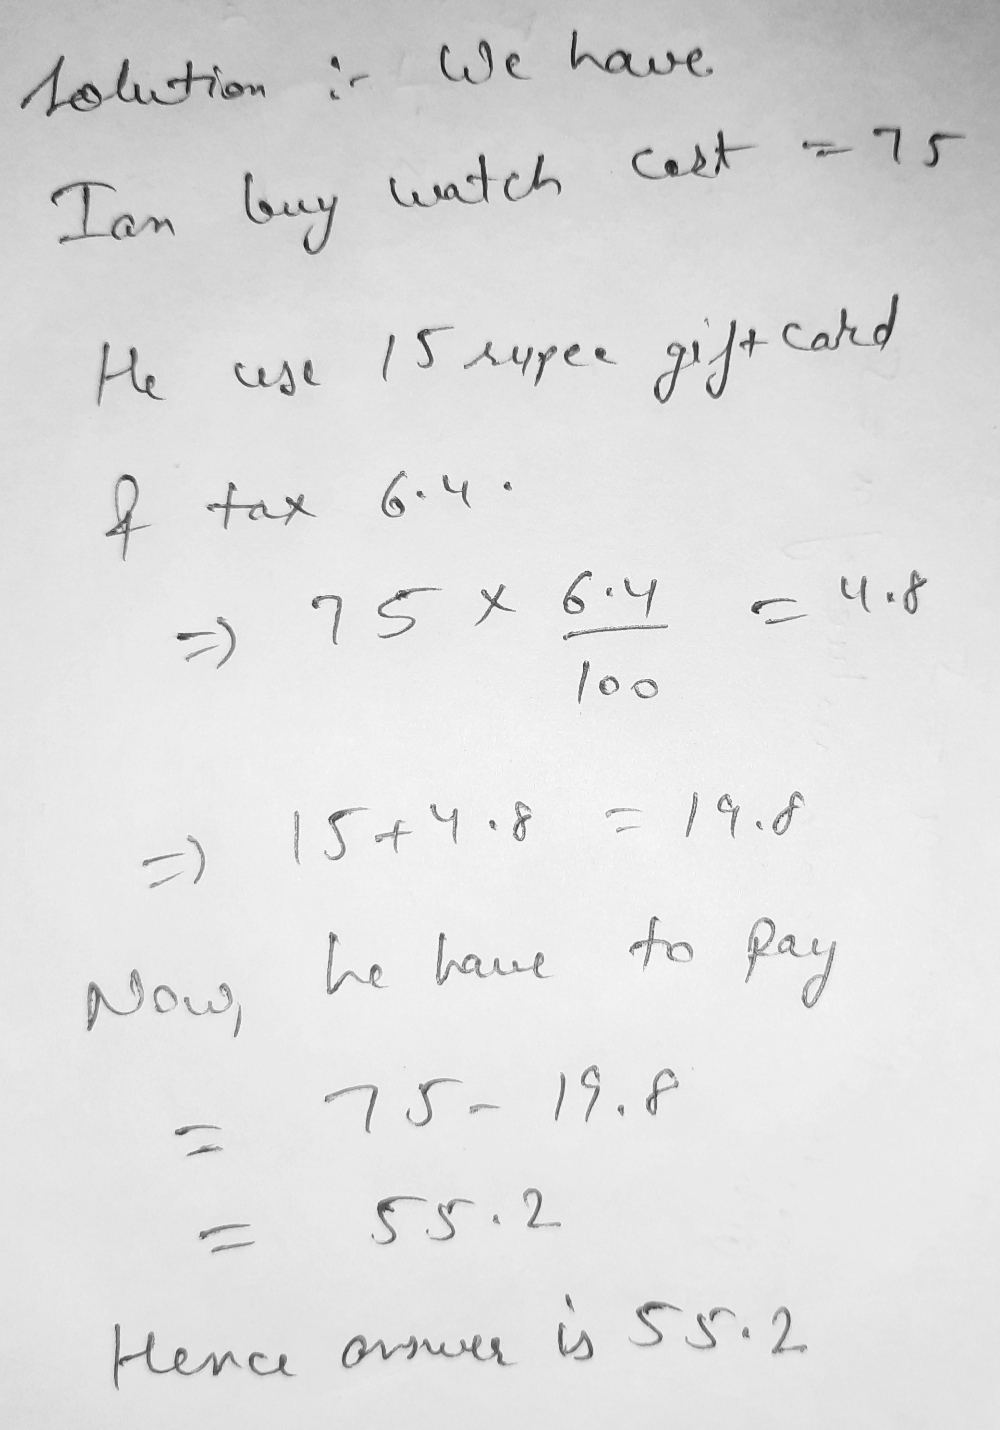 Solution :- We have
Ian buy watch cost = 75
He use 15 rupee gift card
& tax 6.4.
=> 75 x 6.4/100 = 4.8
=> 15+4.8 = 19.8
Now, he have to pay
= 75 - 19.8
= 55.2
Hence answer is 55.2